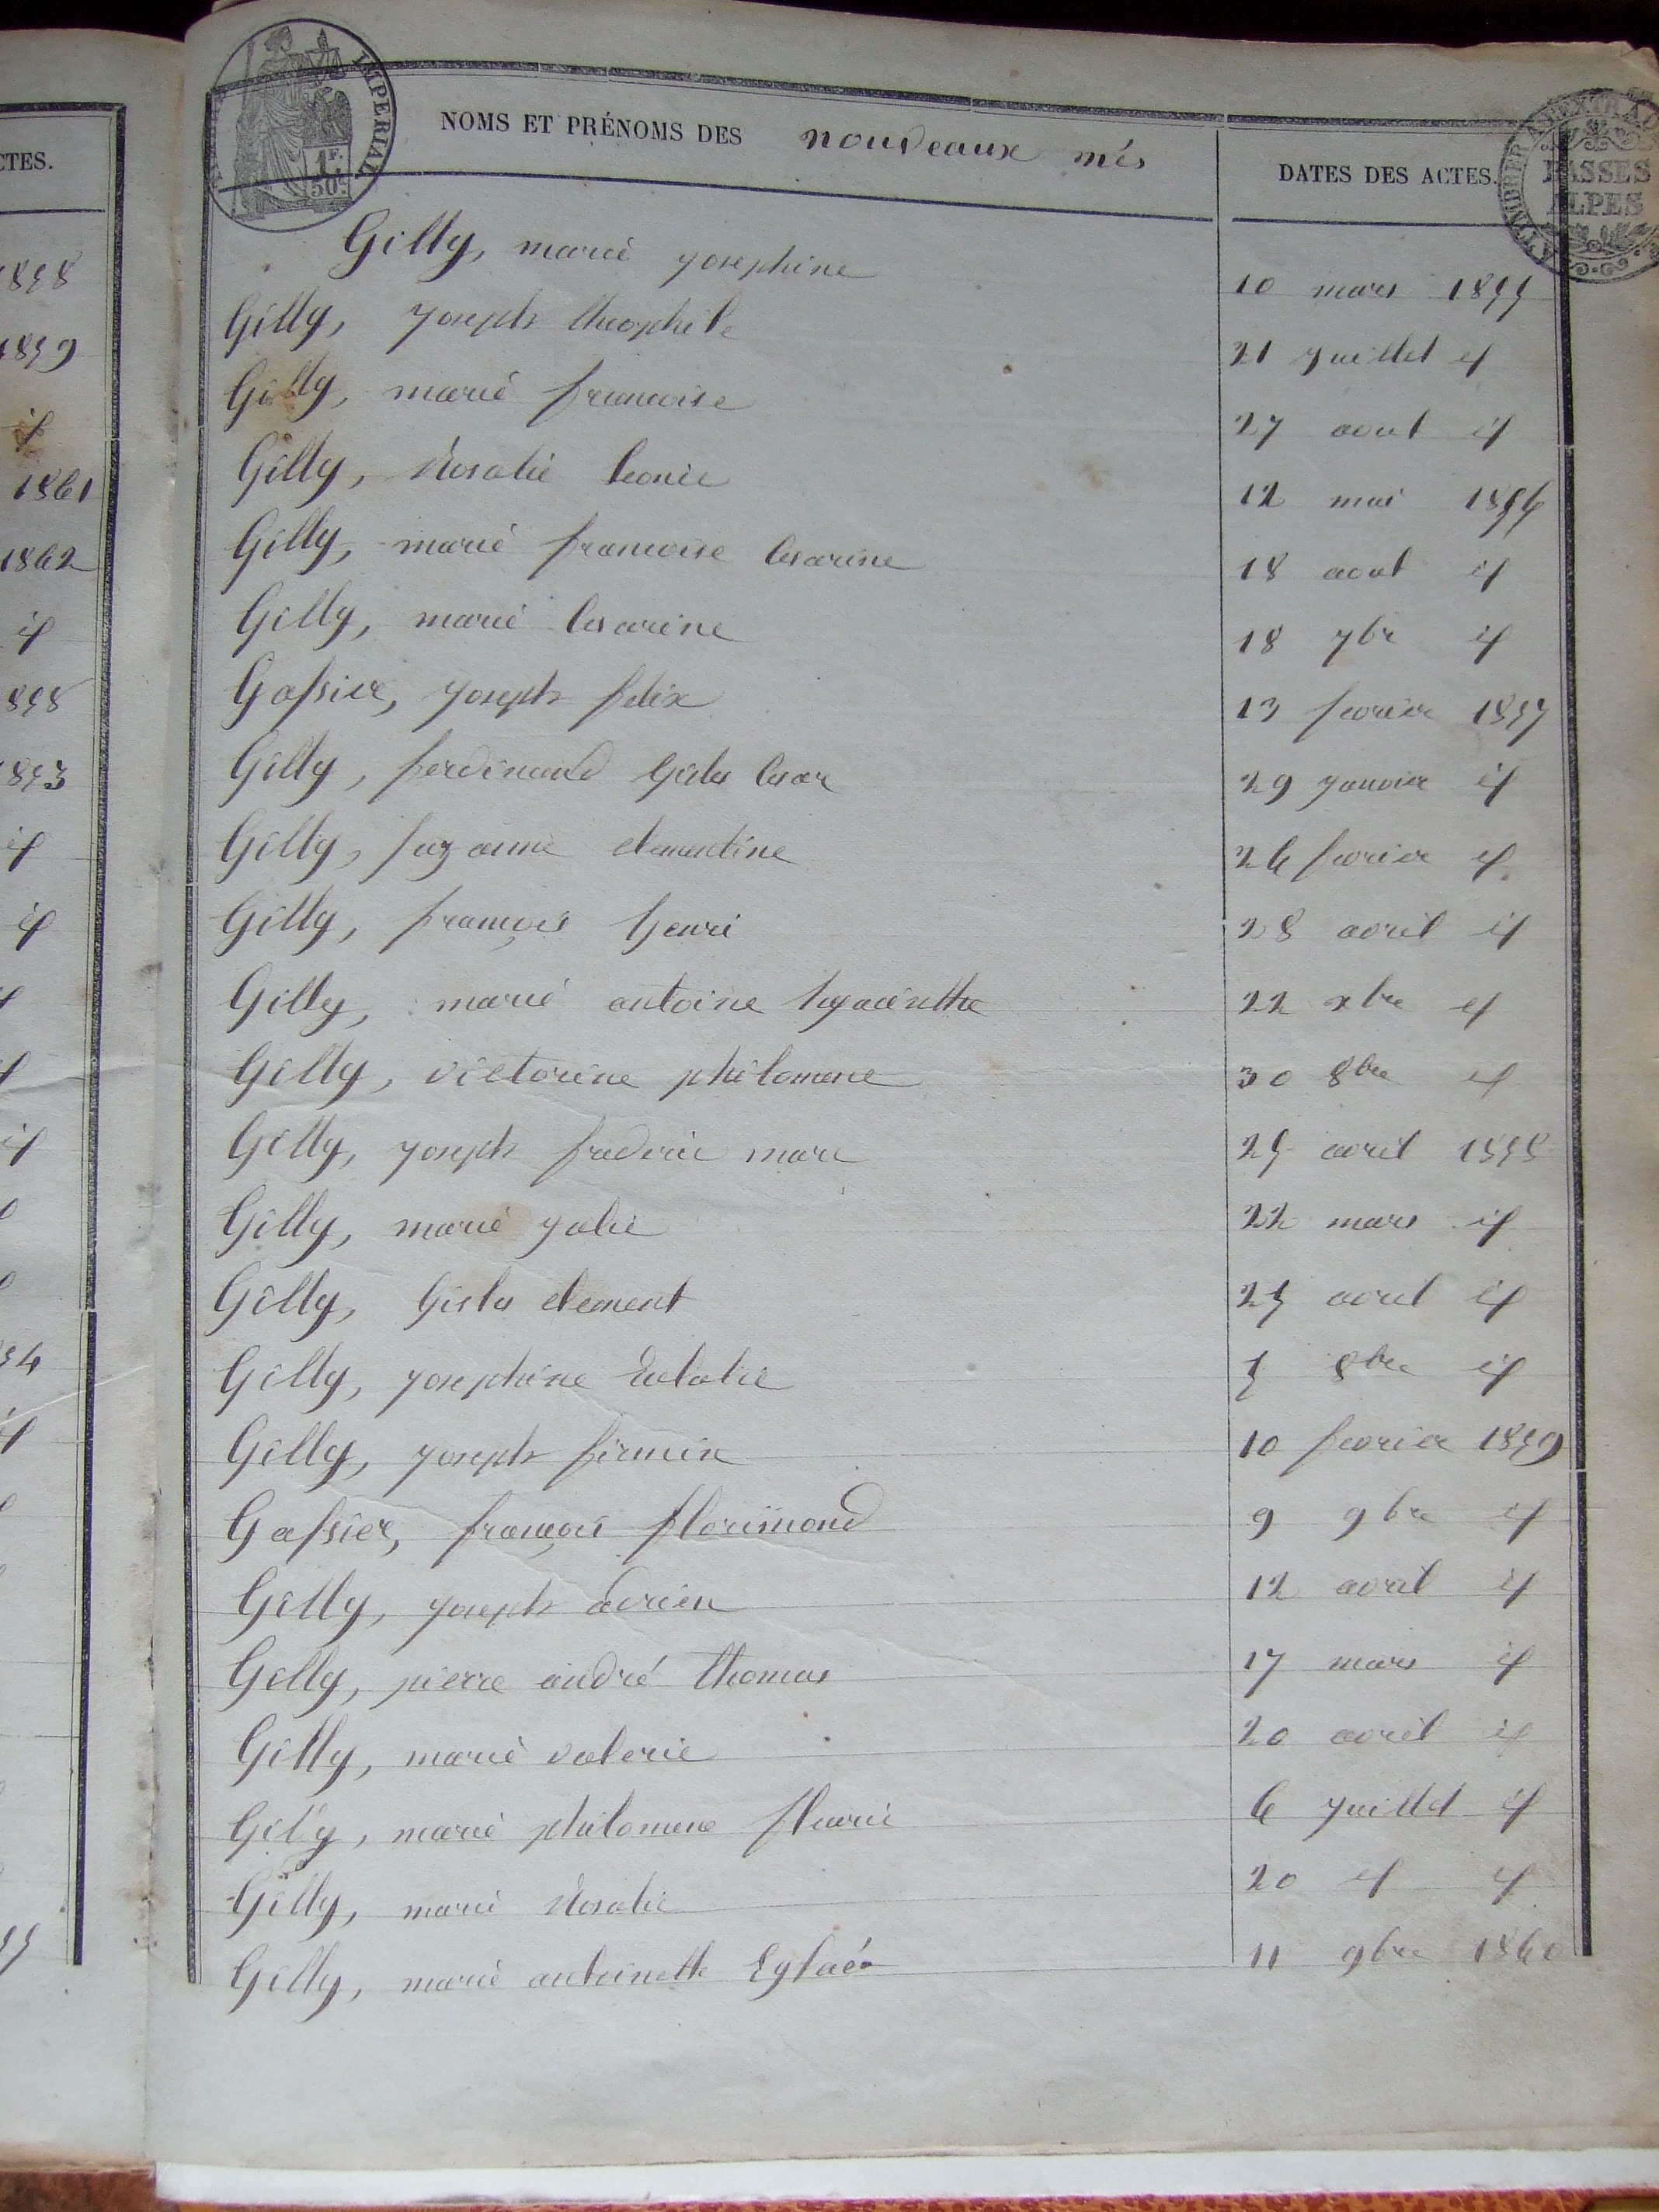 CTES.
1858
1859
id
1861
1862
id
1853
id
id
id
54
id
55
IMPERIAL
1F.
50c.
TIMBRE EXTRAD
BASSES
ALPES
NOMS ET PRÉNOMS DES nouveaux nés
DATES DES ACTES.
Gilly, marie josephine 10 mars 1855
Gilly, joseph theophile 21 juillet id
Gilly, marie francoise 27 aout id
Gilly, Rosalie leonie 12 mai 1856
Gilly, marie francoise Cesarine 18 aout id
Gilly, marie Cesarine 18 7bre id
Gassier, joseph felix 13 fevrier 1857
Gilly, ferdinand Cesar 29 janvier id
Gilly, suzanne clementine 26 fevrier id
Gilly, françois henri 28 avril id
Gilly, marie antoine hyacinthe 22 xbre id
Gilly, victorine philomene 30 8bre id
Gilly, joseph frederic marc 25 avril 1858
Gilly, marie julie 22 mars id
Gilly, clement 25 avril id
Gilly, josephine Eulalie 5 8bre id
Gilly, joseph firmin 10 fevrier 1859
Gassier, françois florimond 9 9bre id
Gilly, joseph adrien 12 avril id
Gilly, pierre andré thomas 17 mars id
Gilly, marie valerie 20 avril id
Gilly, marie philomene fleurie 6 juillet id
Gilly, marie Rosalie 20 id id
Gilly, marie antoinette Eglaé 11 9bre 1860